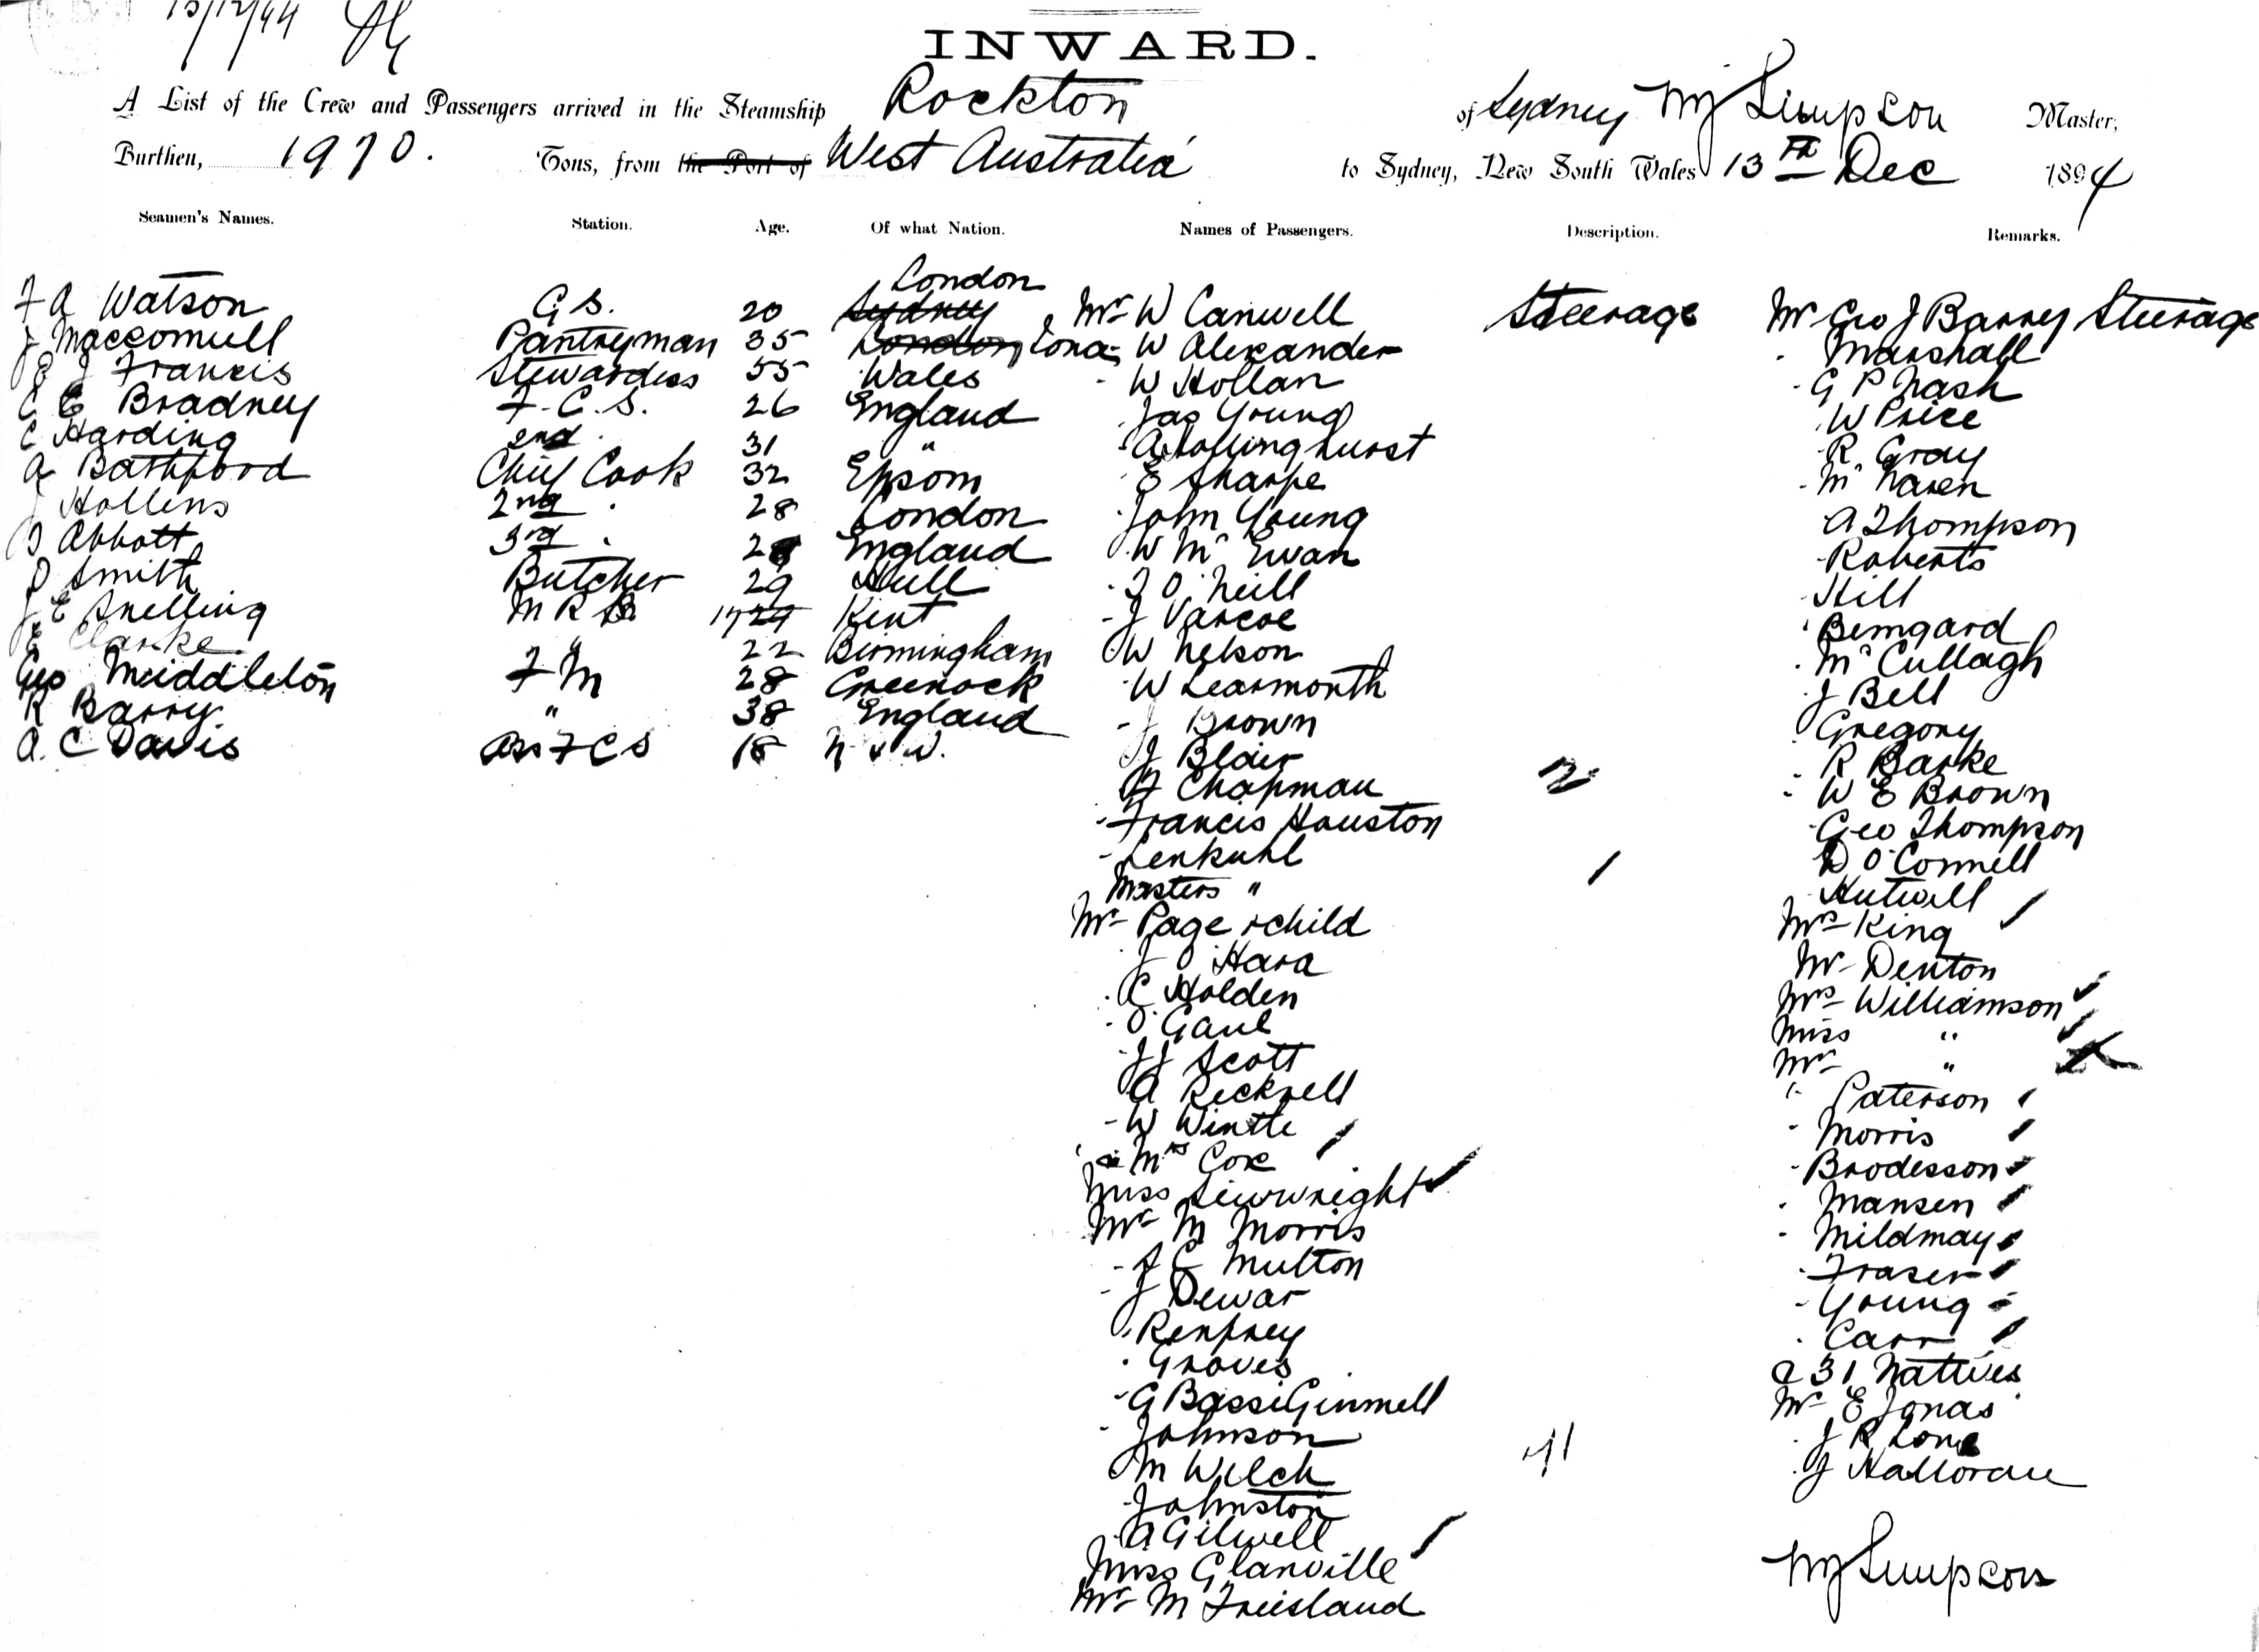 13/12/94
INWARD.
A List of the Crew and Passengers arrived in the Steamship Rockton of Sydney Simpson Master,
Burthen, 1970. Tons, from the Port of West Australia to Sydney, New South Wales 13th Dec 1894
Seamen's Names. Station. Age. Of what Nation. Names of Passengers. Description. Remarks.
F A Watson G S. 20 Sydney London
J Maccomull Pantryman 35 London
E J Francis Stewardess 55 Wales
C E Bradney F. C. S. 26 England
C Harding 2nd . 31 "
A Bathford Chief Cook 32 Epsom
J Hollens 2nd . 28 London
Abbott 3rd . England
Smith Butcher 29 Hull
J E Snelling M R S. 17 29 Kent
E Clarke " 22 Birmingham
Geo Middleton F M 28 Greenock
R Barry " 38 England
A. C Davis Ass F C S 18 N S W.
Mr W Canwell Steerage
W Alexander
- W Hollan
. Jas Young
. A Hollinghurst
. E Sharpe
. John Young
. W Mc Ewan
. J O'Neill
- J Varcoe
W Nelson
. W Learmonth
- J Brown
J Blair
Chapman
- Francis Houston
- Lenkuhl
Masters "
Mr Page & child
J O Hara
. C Holden
. O. Gaul
. JJ Scott
A Recknell
- W Wintle
Mrs Cox
Miss Sievwright
Mr M Morris
- J C Multon
- J Dewar
. Renfrey
. Groves
- G BassiGinmell
- Johnson 41
M Welch
. Johnston
. A Gilwell
Miss Glanville
Mr M Friesland
Mr Geo J Barry Steerage
. Marshall
. G P Nash
. W Price
R. Gray
. Mc Naren
A Thompson
- Roberts
. Hill
. Bemgard
. Mc Cullagh
J Bell
Gregory
. R Barke
. W E Brown
. Geo Thompson
D O'Connell
. Hutwell
Mrs King
Mr Denton
Mrs Williamson
Miss "
Mr "
" Paterson
- Morris
. Brodesson
. Mansen
- Mildmay
. Fraser
. Young
. Carr
& 31 Natives
Mr E Jonas
. J R Long
. J Halloran
Simpson